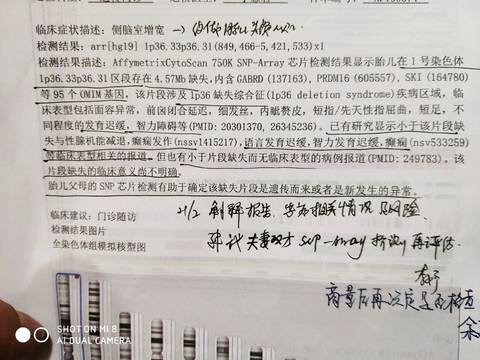 临床症状描述：侧脑室增宽
检测结果：arr[hg19] 1p36.33p36.31(849,466-5,421,533)x1
检测结果描述：AffymetrixCytoScan 750K SNP-Array 芯片检测结果显示胎儿在 1 号染色体
1p36.33p36.31 区段存在 4.57Mb 缺失，内含 GABRD (137163)、PRDM16 (605557)、SKI (164780)
等 95 个 OMIM 基因。该片段涉及 1p36 缺失综合征(1p36 deletion syndrome)疾病区域，临
床表型包括面容异常，前囟闭合延迟，细发丝，内眦赘皮，短指/先天性指屈曲，短足，不
同程度的发育迟缓，智力障碍等(PMID: 20301370, 26345236)。已有研究显示小于该片段缺
失与性腺机能减退，癫痫发作(nssv1415217)，语言发育迟缓，智力发育迟缓，癫痫(nsv533259)
等临床表型相关的报道。但也有小于片段缺失而无临床表型的病例报道(PMID: 249783)。该
片段缺失的临床意义尚不明确。
胎儿父母的 SNP 芯片检测有助于确定该缺失片段是遗传而来或者是新发生的异常。
临床建议：门诊随访
21/2 解释报告，告知相关情况及风险
检测结果图片
建议夫妻双方 SNP-Array 检测再评估
全染色体组模拟核型图
商量后再决定是否检查
SHOT ON MI 8
AI DUAL CAMERA